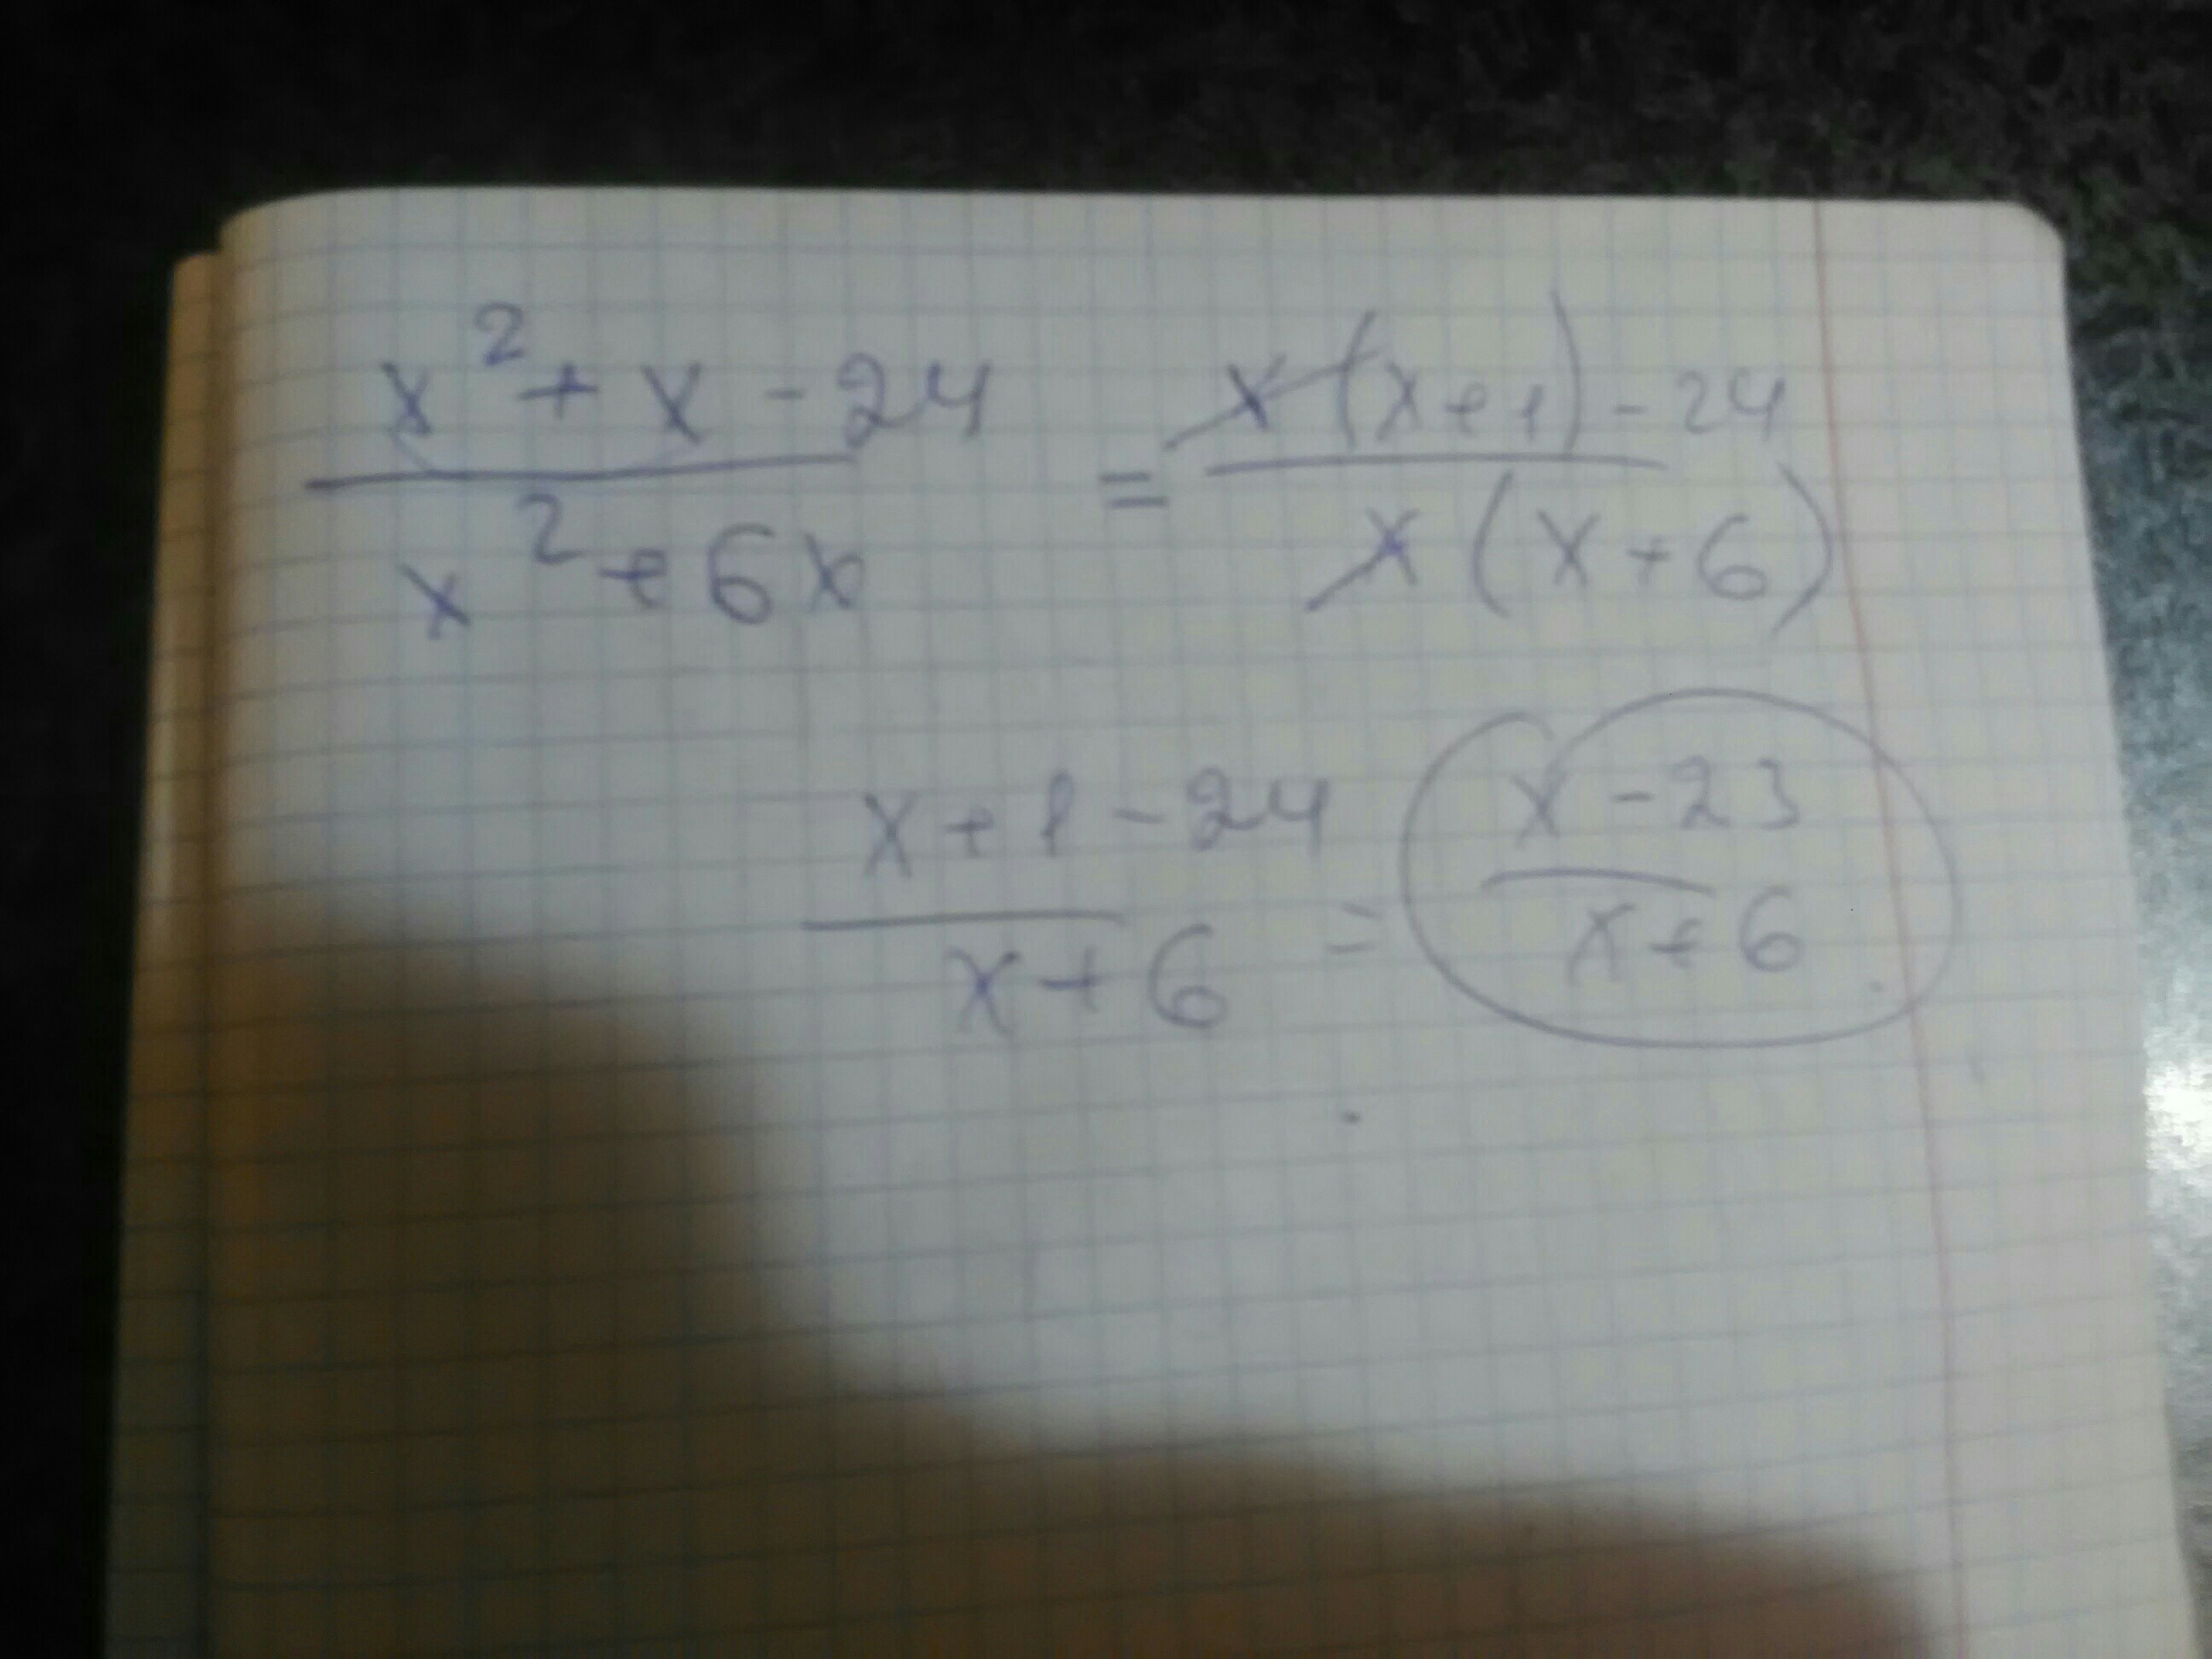 x²+x-24 / x²+6x = x(x+1)-24 / x(x+6)
x+1-24 / x+6 = x-23 / x+6